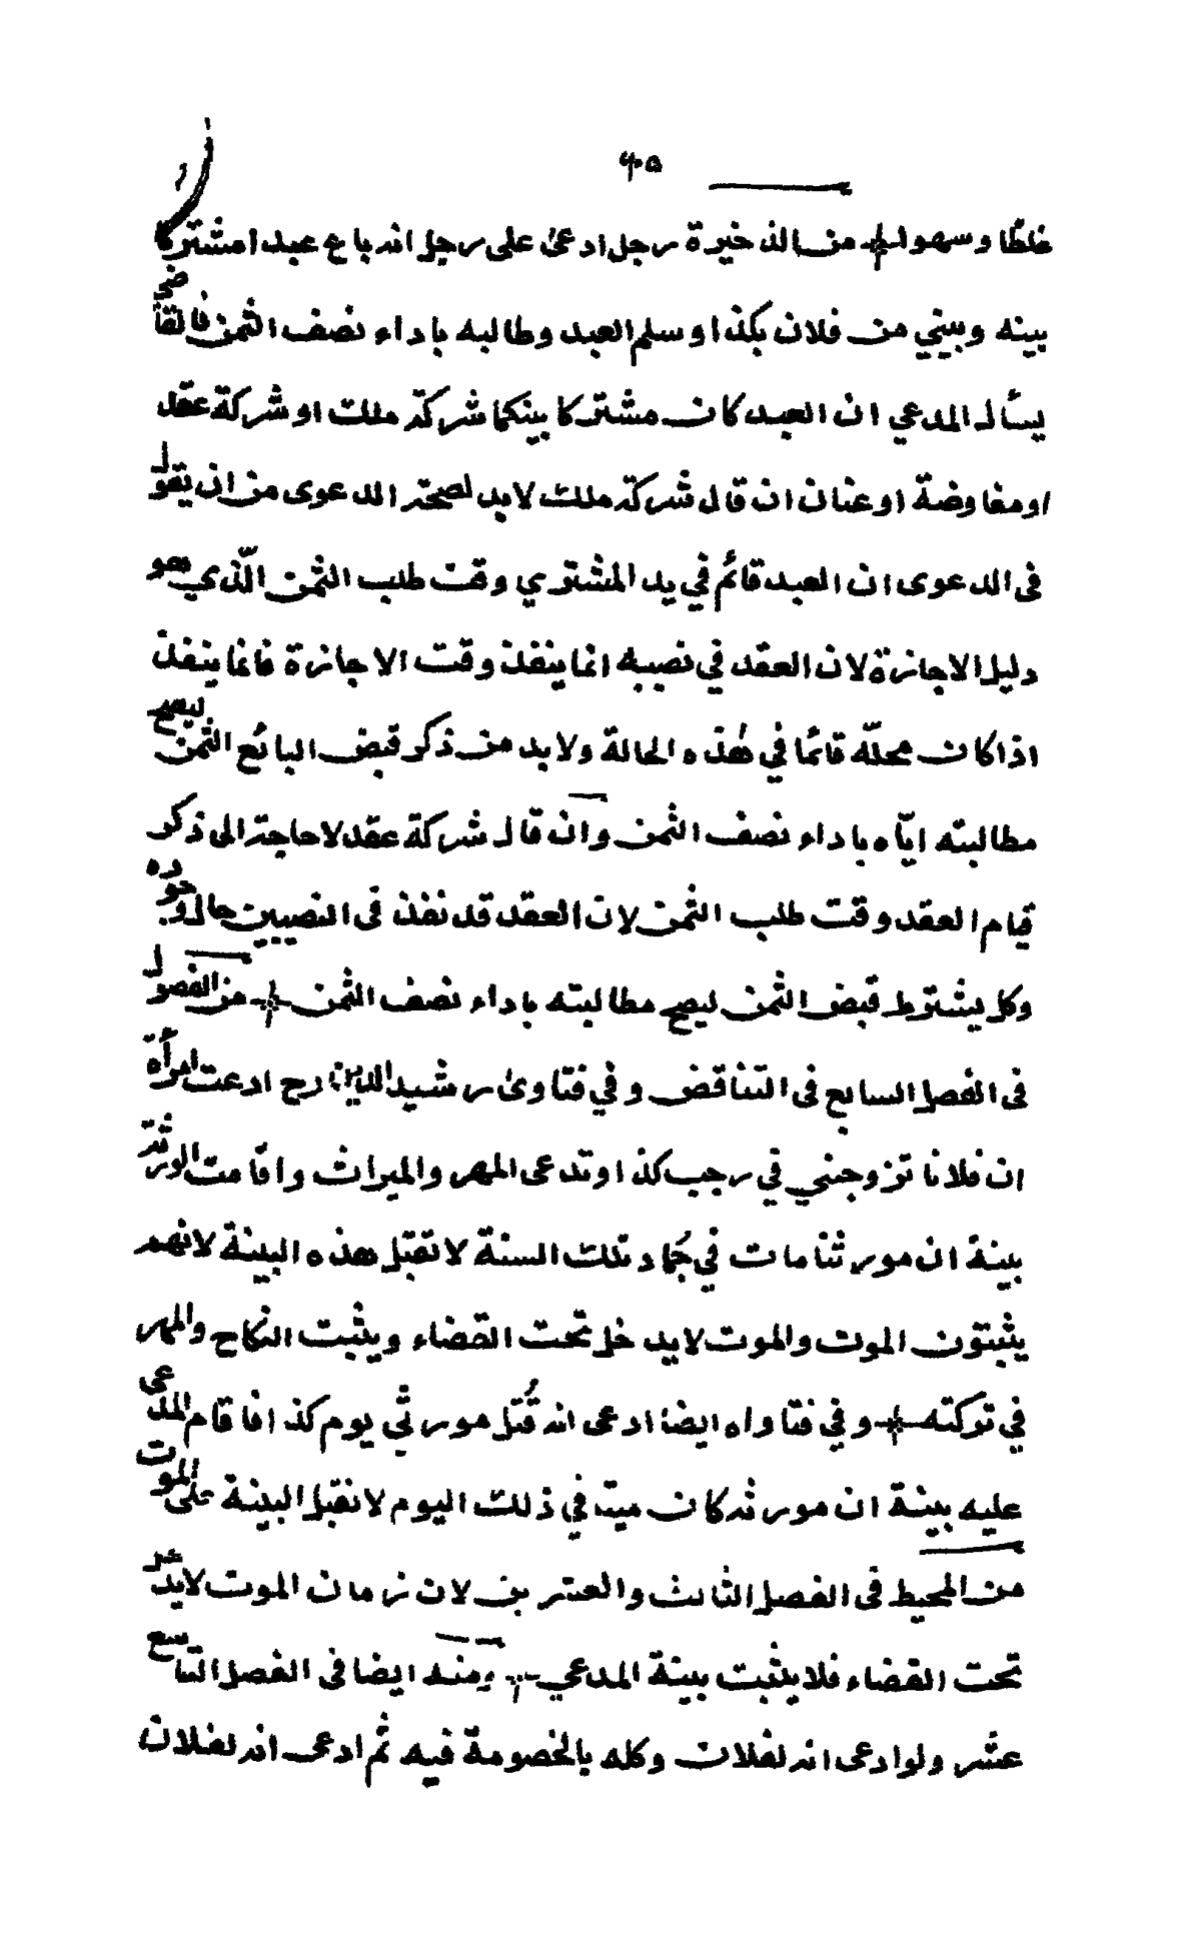 ٤٥
غلطا وسهوا من الذخيرة رجل ادعى على رجل انه باع عبدا مشتركا
بينه وبيني من فلان بكذا وسلم العبد وطالبه باداء نصف الثمن فالقاضي
يسأل المدعي ان العبد كان مشتركا بينكما شركة ملك او شركة عقد
او مفاوضة او عنان ان قال شركة ملك لابد لصحة الدعوى من ان يقول
فى الدعوى ان العبد قائم في يد المشتري وقت طلب الثمن الّذي هو
دليل الاجازة لان العقد في نصيبه انما ينفذ وقت الاجازة فانما ينفذ
اذا كان محلّه قائما في هٰذه الحالة ولابد من ذكر قبض البائع الثمن ليصح
مطالبته ايّاه باداء نصف الثمن وان قال شركة عقد لا حاجة الى ذكر
قيام العقد وقت طلب الثمن لان العقد قد نفذ فى النصيبين حال وجوده
وكل يشترط قبض الثمن ليصح مطالبته باداء نصف الثمن من الفصول
فى الفصل السابع فى التناقض وفي فتاوىٰ رشيد الدين رح ادعت امرأة
ان فلانا تزوجني في رجب كذا وتدعى المهر والميراث واقامت الورثة
بينة ان مورثنا مات في جُماد تلك السنة لا تقبل هذه البينة لانهم
يثبتون الموت والموت لا يدخل تحت القضاء ويثبت النكاح والمهر
في تركته وفي فتاواه ايضا ادعى انه قُتل مورثي يوم كذا فاقام المدعى
عليه بينة ان مورثه كان ميتا في ذلك اليوم لا تقبل البينة على الموت
من المحيط فى الفصل الثالث والعشرين لان زمان الموت لا يدخل
تحت القضاء فلا يثبت بينة المدعي ومنه ايضا فى الفصل التاسع
عشر ولو ادعى انه لفلان وكله بالخصومة فيه ثم ادعى انه لفلان